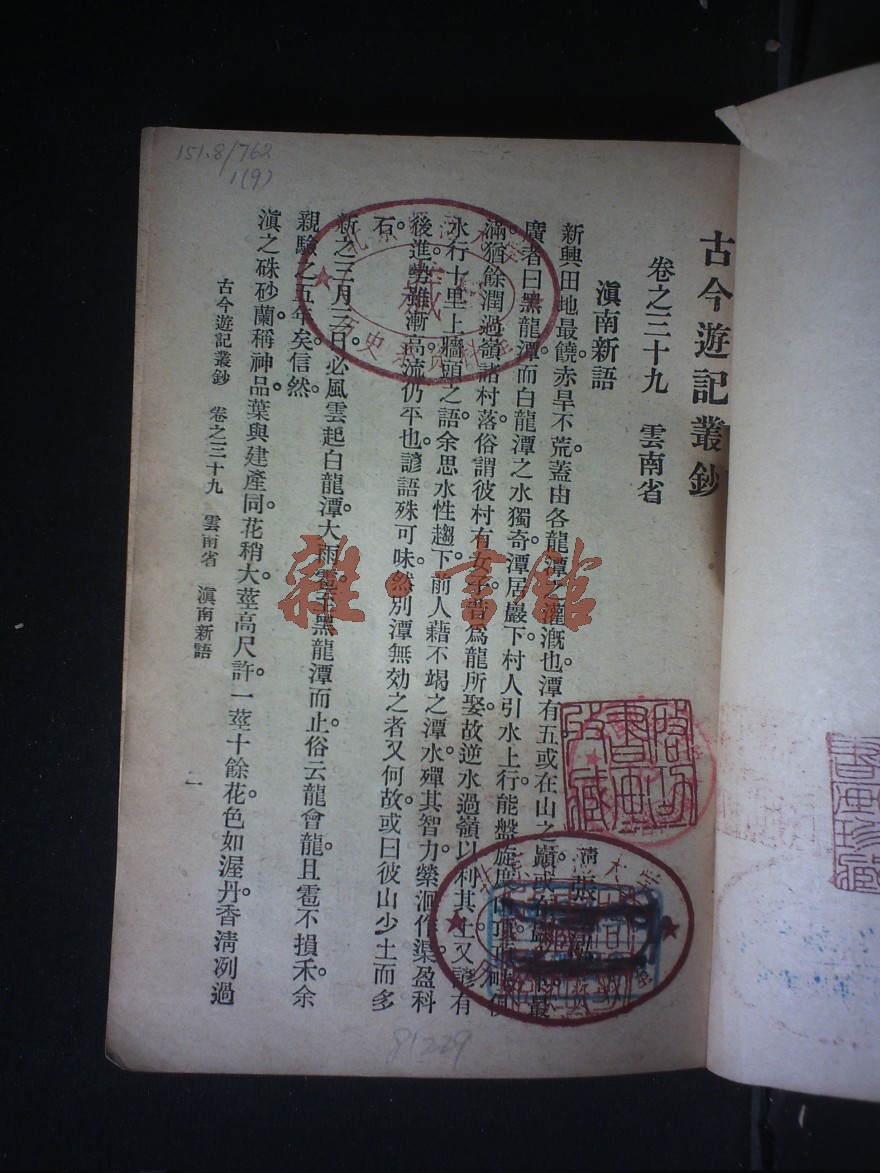 151.8/762
1(9)
古今遊記叢鈔
卷之三十九 雲南省
滇南新語
清 張
新興田地最饒赤旱不荒蓋由各龍潭之灌漑也潭有五或在山之巓或 最
廣者曰黑龍潭而白龍潭之水獨奇潭居巖下村人引水上行能盤旋度
滿猶餘潤過嶺諸村落俗謂彼村有女子昔爲龍所娶故逆水過嶺以利其土又諺有
水行十里上牆頭之語余思水性趨下前人藉不竭之潭水殫其智力縈洄作渠盈科
後進勢雖漸高流仍平也諺語殊可味然別潭無効之者又何故或曰彼山少土而多
石
新之三月三日必風雲起白龍潭大雨雹至黑龍潭而止俗云龍會龍且雹不損禾余
親驗之五年矣信然
滇之硃砂蘭稱神品葉與建產同花稍大莖高尺許一莖十餘花色如渥丹香淸冽過
古今遊記叢鈔 卷之三十九 雲南省 滇南新語
一
雜·書館
81229